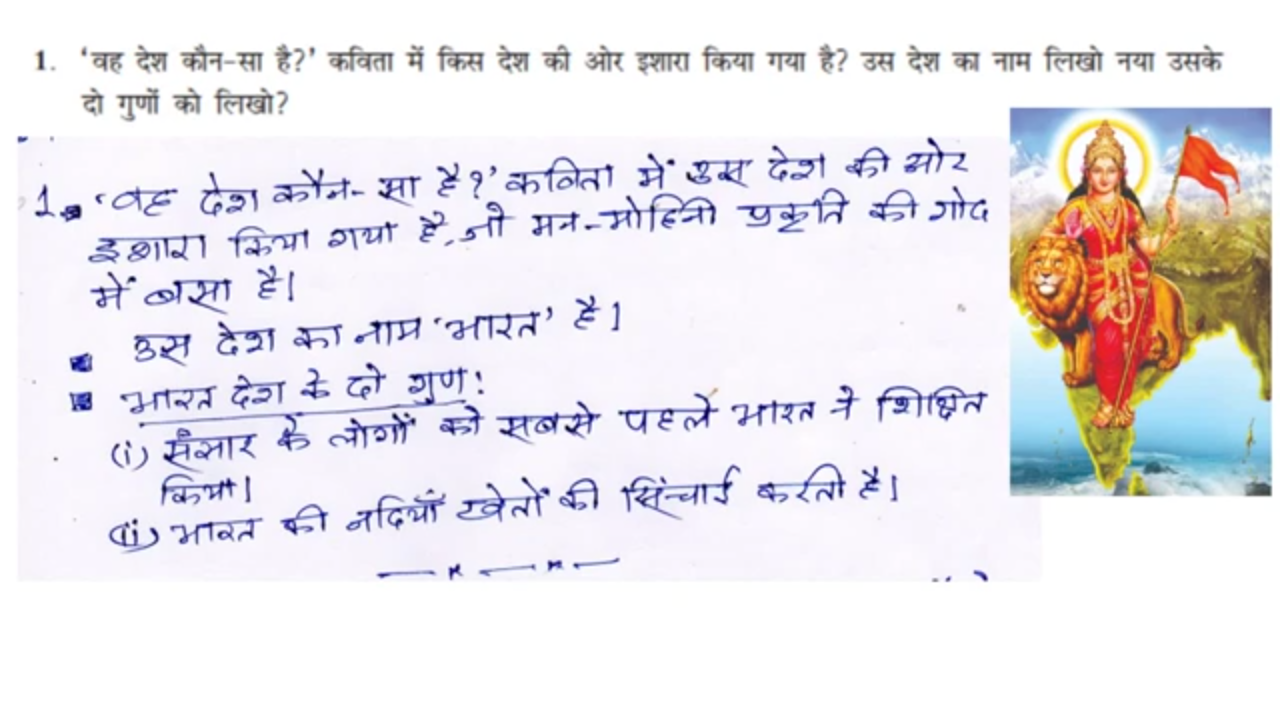 1. ‘वह देश कौन-सा है?’ कविता में किस देश की ओर इशारा किया गया है? उस देश का नाम लिखो नया उसके
दो गुणों को लिखो?
1. ‘वह देश कौन-सा है?’ कविता में उस देश की ओर
इशारा किया गया है, जो मन-मोहिनी प्रकृति की गोद
में बसा है।
उस देश का नाम ‘भारत’ है।
भारत देश के दो गुण:
(i) संसार के लोगों को सबसे पहले भारत ने शिक्षित
किया।
(ii) भारत की नदियाँ खेतों की सिंचाई करती है।